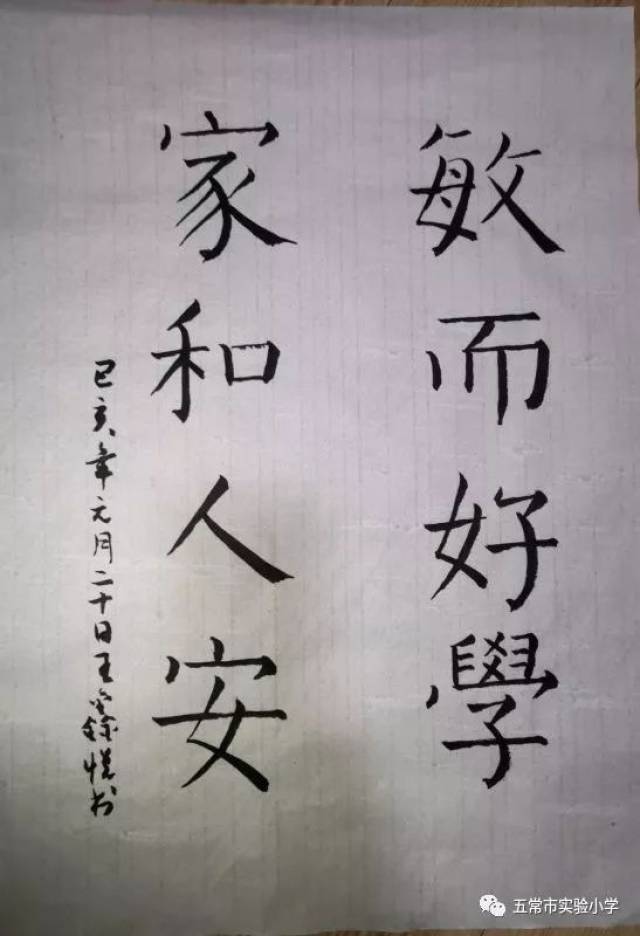 敏而好學
家和人安
己亥年元月二十日王悦书
五常市实验小学